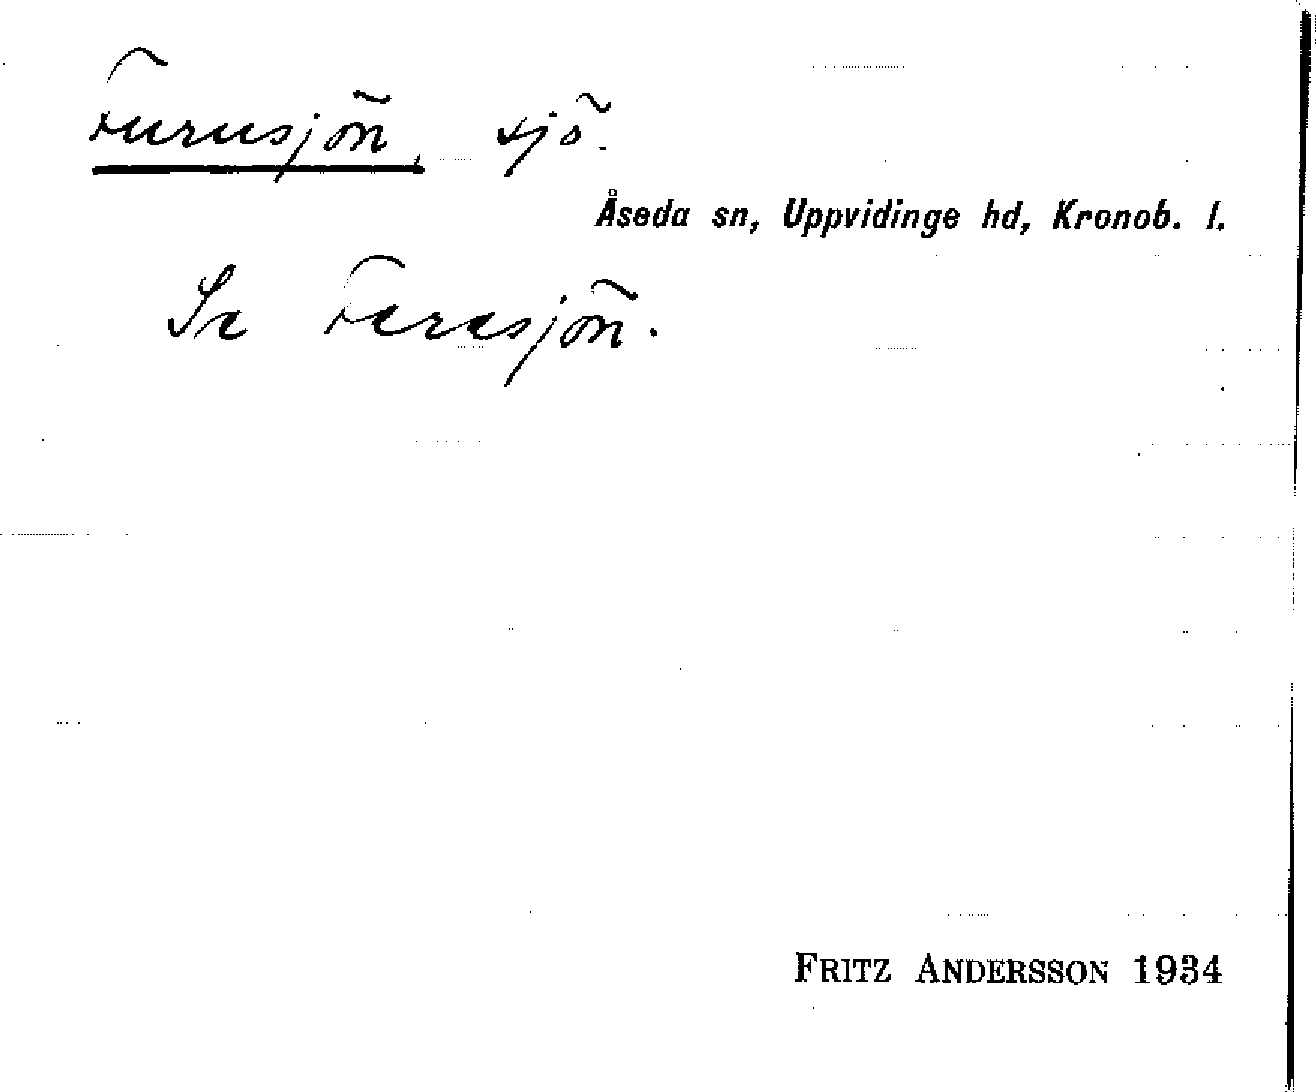 Furusjön, sjö.
Åseda sn, Uppvidinge hd, Kronob. l.
Se Feresjön.
FRITZ ANDERSSON 1934